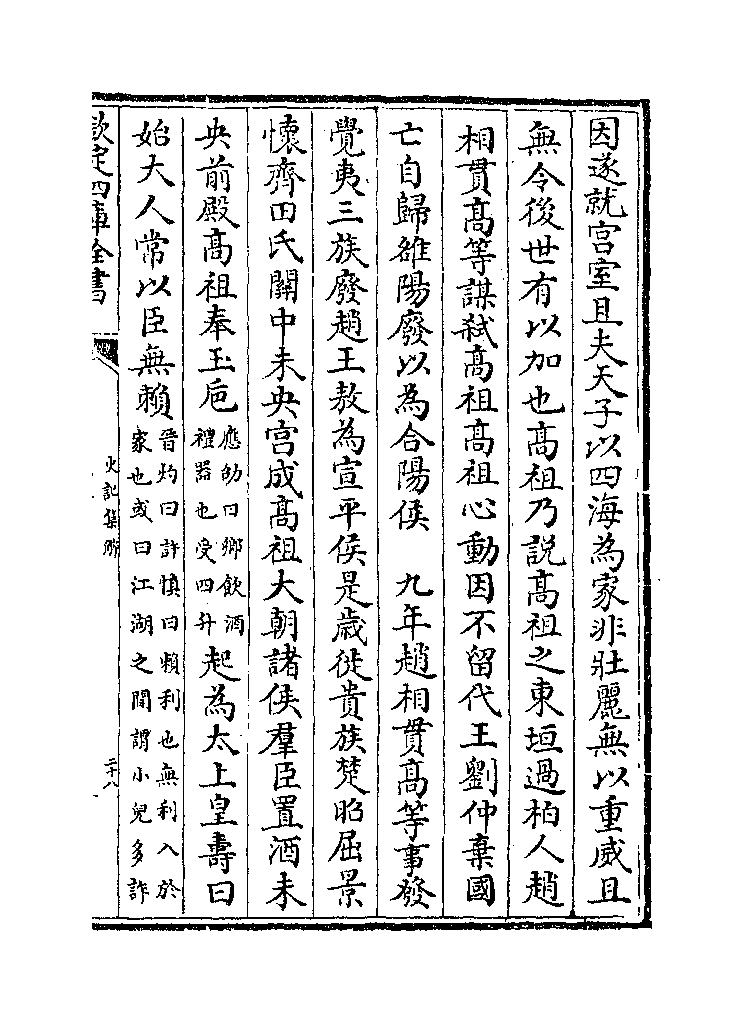 因遂就宫室且夫天子以四海為家非壯麗無以重威且
無令後世有以加也髙祖乃説髙祖之東垣過柏人趙
相貫髙等謀弑髙祖髙祖心動因不留代王劉仲棄國
亡自歸雒陽廢以為合陽侯　九年趙相貫髙等事發
覺夷三族廢趙王敖為宣平侯是歳徙貴族楚昭屈景
懷齊田氏關中未央宫成髙祖大朝諸侯羣臣置酒未
央前殿髙祖奉玉巵應劭曰鄉飲酒禮器也受四升起為太上皇壽曰
始大人常以臣無賴晉灼曰許慎曰賴利也無利入於家也或曰江湖之間謂小兒多詐
欽定四庫全書
史記集解
二十八